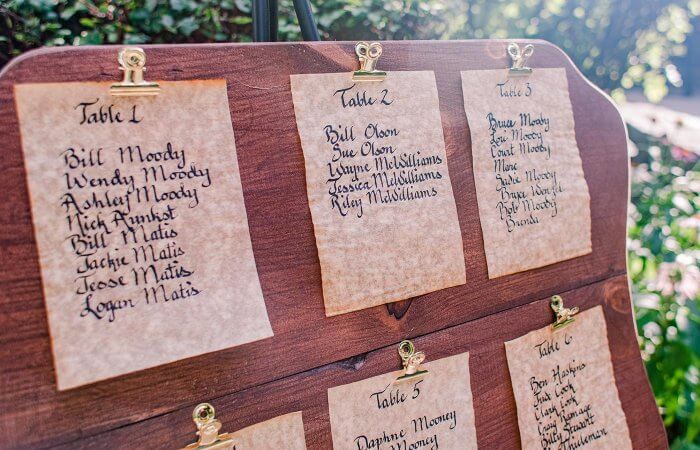 Table 1
Bill Moody
Wendy Moody
Ashley Moody
Nick Armhst
Bill Matis
Jackie Matis
Jesse Matis
Logan Matis
Table 2
Bill Olson
Sue Olson
Wayne McWilliams
Jessica McWilliams
Riley McWilliams
Table 3
Bruce Moody
Lori Moody
Court Moody
Marc
Sadie Moody
Bryce
Bob Moody
Brenda
Table 5
Daphne Mooney
Mooney
Table 6
Ben Haskins
Cook
Clark Cook
Craig Ramage
Billy Stewart
Thieleman